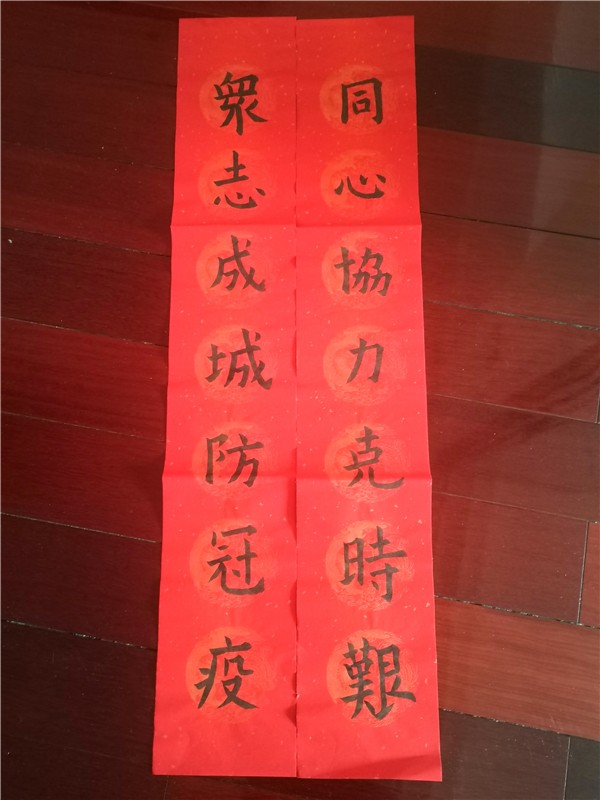 同心協力克時艱
衆志成城防冠疫